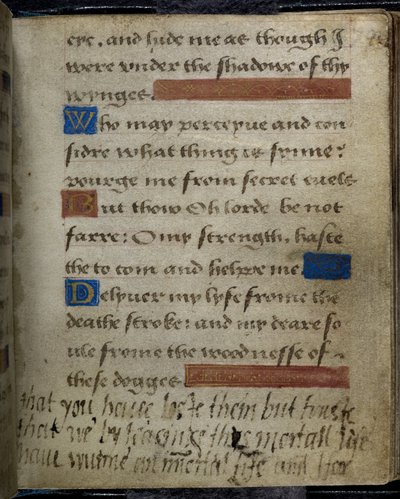 eye, and hide me as though I
were vnder the shadowe of thy
wynges.
Who may perceyue and con
sidre what thing is synne?
pourge me from secret euels
But thow Oh lorde be not
farre: O my strength, haste
the to com and helpe me
Delyuer my lyfe frome the
deathe stroke: and my deare so
ule frome the woodnesse of
these dogges
that you haue loste them but truste
that we by leasinge this mertall life
haue wunne an immertal life and